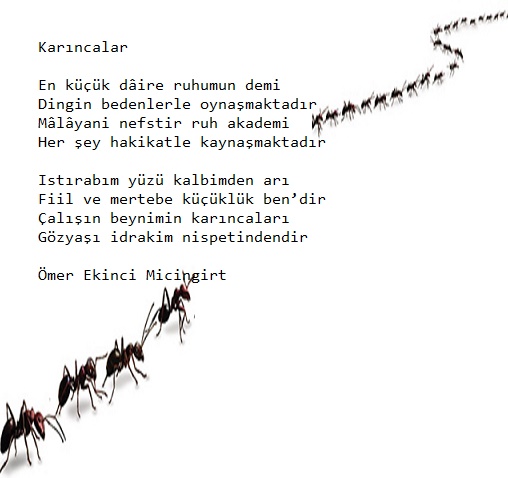 Karıncalar
En küçük dâire ruhumun demi
Dingin bedenlerle oynaşmaktadır
Mâlâyani nefstir ruh akademi
Her şey hakikatle kaynaşmaktadır
Istırabım yüzü kalbimden arı
Fiil ve mertebe küçüklük ben’dir
Çalışın beynimin karıncaları
Gözyaşı idrakim nispetindendir
Ömer Ekinci Micingirt